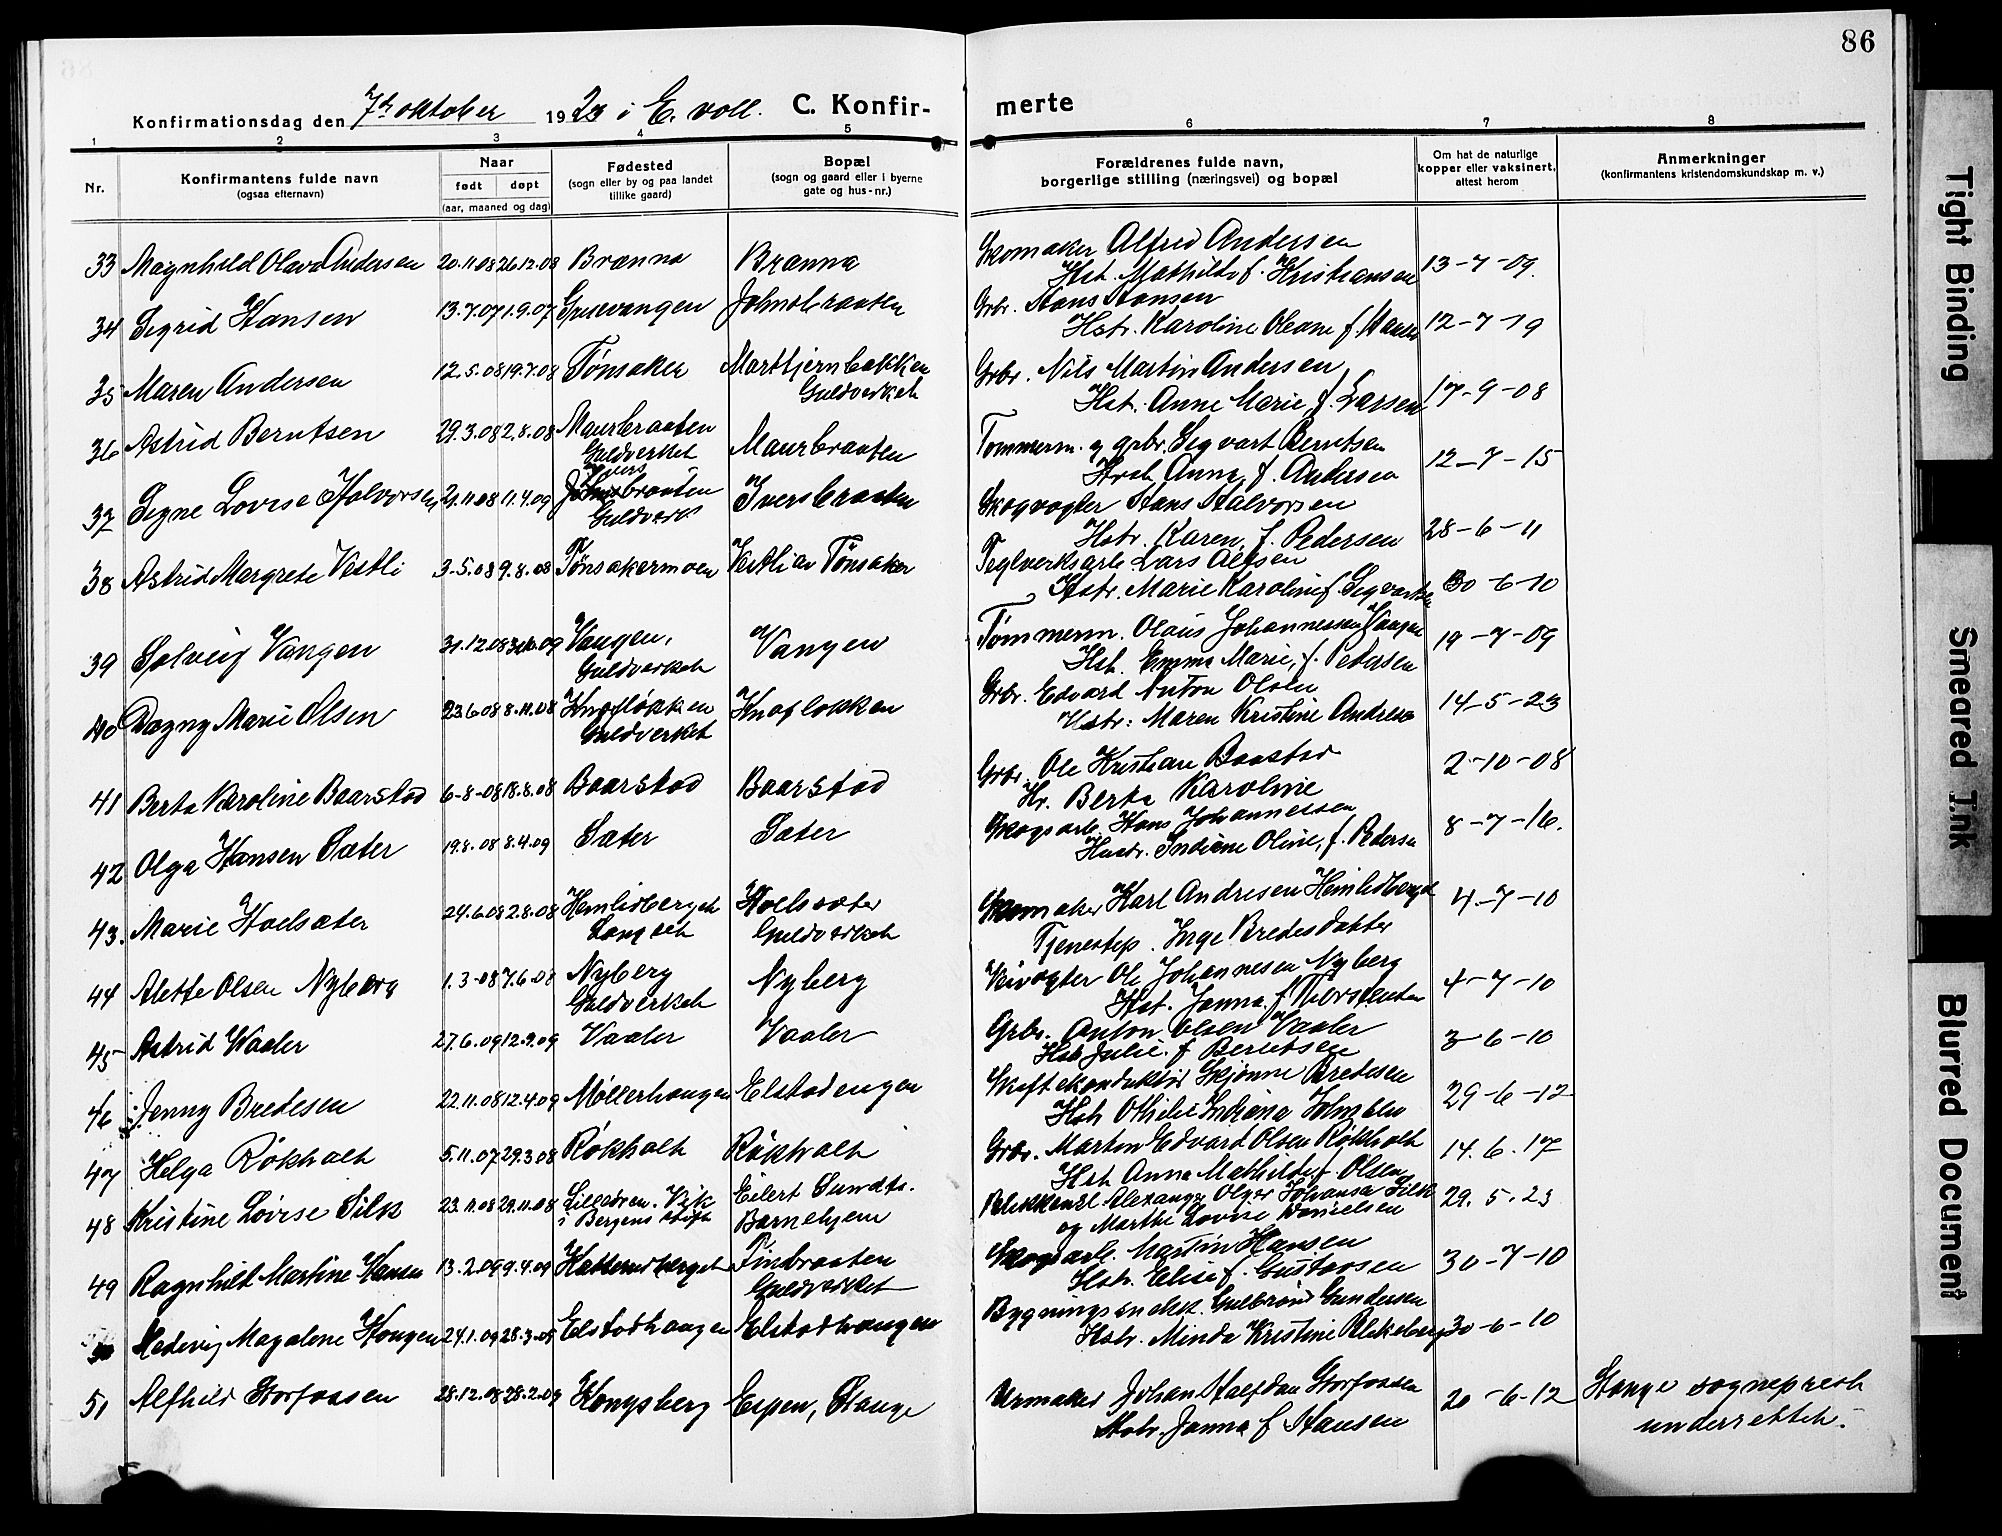 86
Konfirmationsdag den 7de oktober 1923 i E. voll. C. Konfirmerte
1 2 3 4 5 6 7 8
Nr.
Konfirmantens fulde navn
(ogsaa efternavn)
Naar
født døpt
(aar, maaned og dag)
Fødested
(sogn eller by og paa landet
tillike gaard)
Bopæl
(sogn og gaard eller i byerne
gate og hus-nr.)
Forældrenes fulde navn,
borgerlige stilling (næringsvei) og bopæl
Om hat de naturlige
kopper eller vaksinert,
attest herom
Anmerkninger
(konfirmantens kristendomskundskap m. v.)
33 Magnhild Olava Andersen 20.11.08 26.12.08 Brænna Brænna Skomaker Alfred Andersen
Hst. Mathilde f. Kristiansen 13-7-09.
34 Sigrid Hansen 13.7.07 1.9.07 Johnsbraaten Grbr. Hans Hansen
Hstr. Karoline Oleane f. Hansen 12-7-19
35 Maren Andersen 12.5.08 19.7.08 Tønsaker Marttjernbakken
Guldverket
Grbr. Nils Martin Andersen
Hst. Anne Marie f. Larsen 17-9-08
36 Astrid Berntsen 29.3.08 2.8.08 Maurbraaten
Guldverket
Maurbraaten Tømmerm. og grbr. Sigvart Berntsen
Hst. Anna f. Andersen 12-7-15
37 Signe Lovise Halvorsen 21.11.08 11.4.09 Iversbraaten
Guldverk
Iversbraaten Skogvogter Hans Halvorsen
Hstr. Karen, f. Pedersen 28-6-11
38 Astrid Margrete Vestli 3-5.08 9.8.08 Tønsakermoen Vestli av Tønsaker Teglverksarb. Lars Alfsen
Hstr. Marie Karoline f. Sigvartsen 30-6-10
39 Solveig Vangen 31.12.08 Vangen,
Guldverket
Vangen Tømmerm. Olaus Johannessen Vangen
Hst. Emma Marie, f. Pedersen 19-7-09
40 Dagny Marie Olsen 23.6.08 8.11.08 Knapløkken
Guldverket
Knapløkken Grbr. Edvard Anton Olsen
Hstr: Maren Kristine Andresen 14-5-23
41 Berta Karoline Baarstad 6-8-08 18.8.08 Baarstad Baarstad Grbr. Ole Kristian Baastad
Hr. Berta Karoline 2-10-08
42 Olga Hansen Sæter 19.8.08 8.4.09 Sæter Sæter Skogsarb. Hans Johannessen
Hustr. Indiane Oline, f. Pedersen 8-7-16.
43. Marie Hoelsæter 24.6.08 2.8.08 Hemlidberget
Langset
Hoelsæter
Guldverket
Skomaker Karl Andresen Hemlidberget
Tjenestep. Inga Bredesdatter 4-7-10
44 Alette Olsen Nyberg 1.3-08 7.6.08 Nyberg
Guldverket
Nyberg Veivogter Ole Johannesen Nyberg
Hst. Janna f. Thorstensen 4-7-10
45 Astrid Vaaler 27.6.09 12.9.09 Vaaler Vaaler Grbr. Anton Olsen Vaaler
Hst Julie. f Berntsen 3-6-10
46 Jenny Bredesen 22.11.08 12.4.09 Møllerhaugen Elstadengen Skiftekonduktør Skjønne Bredesen
Hst Othilie Indiana Johnsen 29-6-12
47 Helga Røkholt 5.11.07 29.3.08 Røkholt Røkholt Grbr. Martin Edvard Olsen Røkholt
Hst Anna Mathilde f. Olsen 14.6.17
48 Kristine Lovise Silk 23.11.08 29.11.08 Vik
i Bergens stift
Eilert Sundts.
Barnehjem
Olger Johansa Silk
og Marthe Lovise Danielsen 29.5.23
49 Ragnhild Martine Hansen 13.2.09 9.4.09 Finbraaten
Guldverket
Skogsarb. Martin Hansen
Hstr. Elise f. Gustavsen 30-7-10
50 Hedevig Magalene Haugen 24.1.09 28.3.09 Elstadhaugen Elstadhaugen Bygningssnekk. Gulbrand Gundersen
Hstr. Minda Kristine Blekeberg 30-6-10
51 Alfhild Storfossen 28.12.08 28.2.09 Kongsberg Espen, Stange Urmaker Johan Halfdan Storfossen
Hstr. Janna f Hansen 20-6-12 Stange sogneprest
underrettet.
Tight Binding
Smeared Ink
Blurred Document